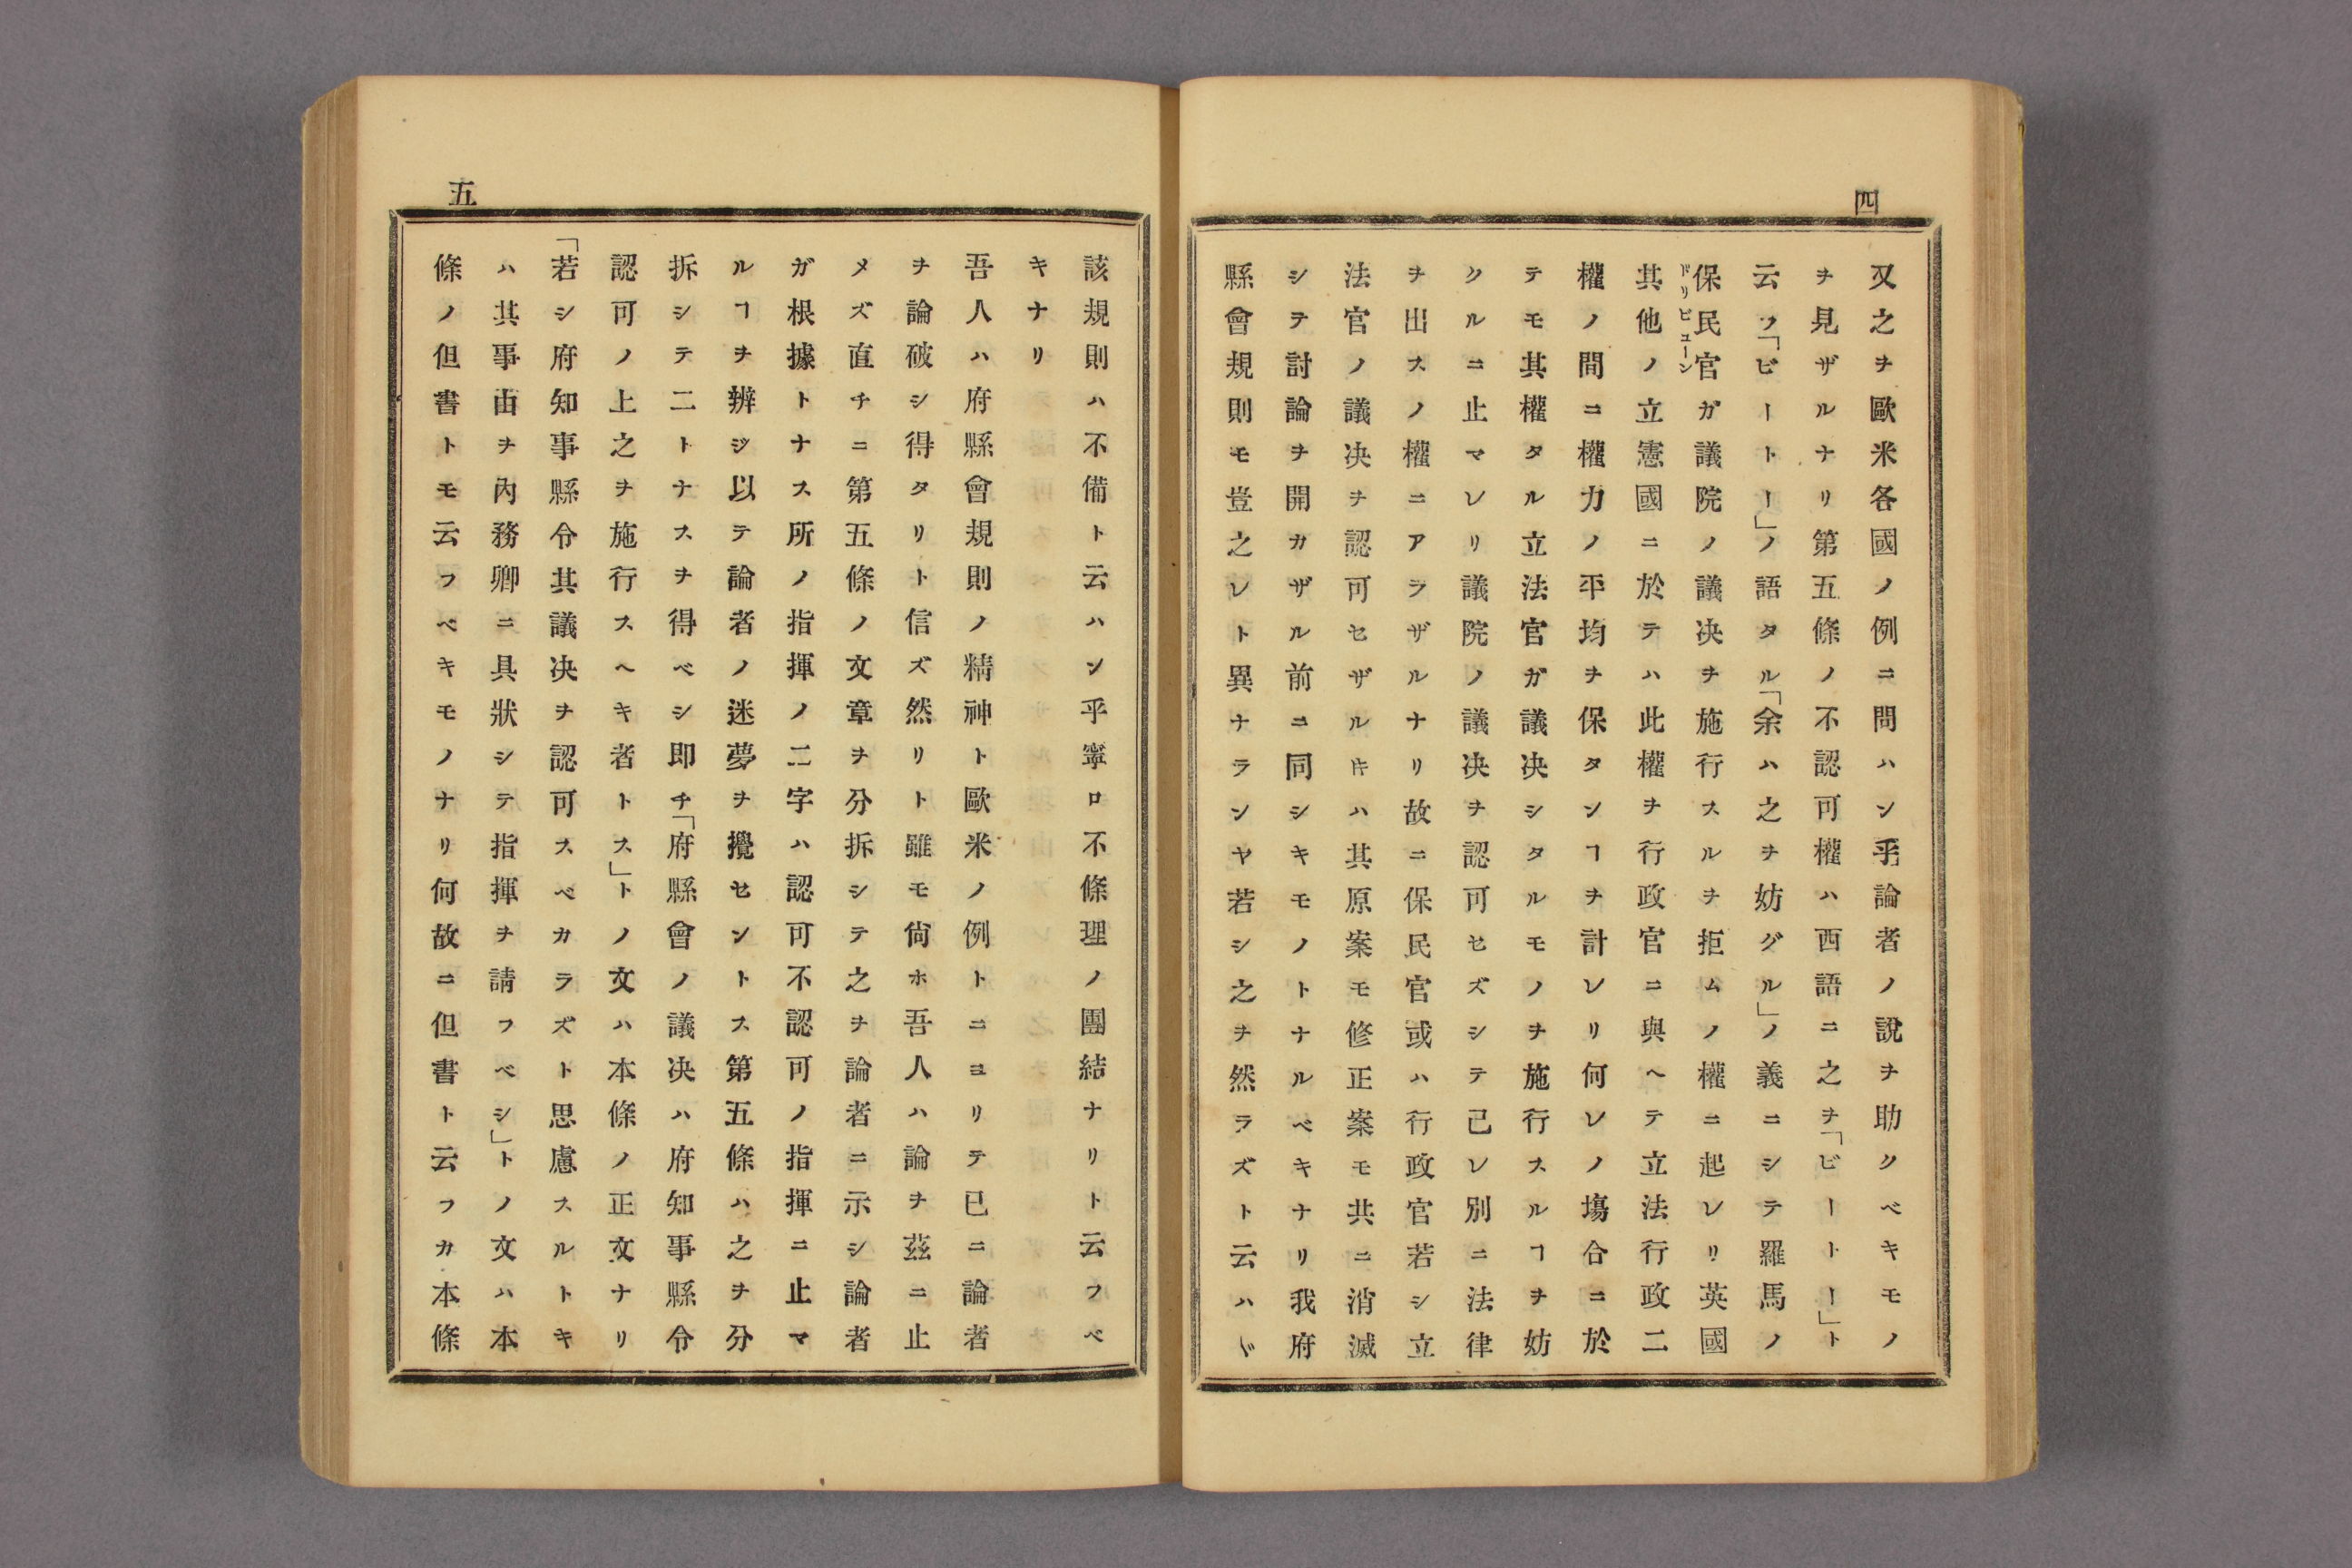 四
又之ヲ歐米各國ノ例ニ問ハン乎論者ノ説ヲ助クベキモノ
ヲ見ザルナリ第五條ノ不認可權ハ西語ニ之ヲ「ビートー」ト
云フ「ビートー」ノ語タル「余ハ之ヲ妨グル」ノ義ニシテ羅馬ノ
保民官ガ議院ノ議决ヲ施行スルヲ拒ムノ權ニ起レリ英國
ドリビューン
其他ノ立憲國ニ於テハ此權ヲ行政官ニ與ヘテ立法行政二
權ノ間ニ權力ノ平均ヲ保タンヿヲ計レリ何レノ塲合ニ於
テモ其權タル立法官ガ議决シタルモノヲ施行スルヿヲ妨
クルニ止マレリ議院ノ議决ヲ認可セズシテ己レ別ニ法律
ヲ出スノ權ニアラザルナリ故ニ保民官或ハ行政官若シ立
法官ノ議决ヲ認可セザルキハ其原案モ修正案モ共ニ消滅
シテ討論ヲ開カザル前ニ同シキモノトナルベキナリ我府
縣會規則モ豈之レト異ナランヤ若シ之ヲ然ラズト云ハヾ
五
該規則ハ不備ト云ハン乎寧ロ不條理ノ團結ナリト云フベ
キナリ
吾人ハ府縣會規則ノ精神ト歐米ノ例トニヨリテ已ニ論者
ヲ論破シ得タリト信ズ然リト雖モ尙ホ吾人ハ論ヲ茲ニ止
メズ直チニ第五條ノ文章ヲ分拆シテ之ヲ論者ニ示シ論者
ガ根據トナス所ノ指揮ノ二字ハ認可不認可ノ指揮ニ止マ
ルヿヲ辨ジ以テ論者ノ迷夢ヲ攪セントス第五條ハ之ヲ分
拆シテ二トナスヲ得ベシ即チ「府縣會ノ議决ハ府知事縣令
認可ノ上之ヲ施行スヘキ者トス」トノ文ハ本條ノ正文ナリ
「若シ府知事縣令其議决ヲ認可スベカラズト思慮スルトキ
ハ其事由ヲ內務卿ニ具狀シテ指揮ヲ請フベシ」トノ文ハ本
條ノ但書トモ云フベキモノナリ何故ニ但書ト云フカ本條